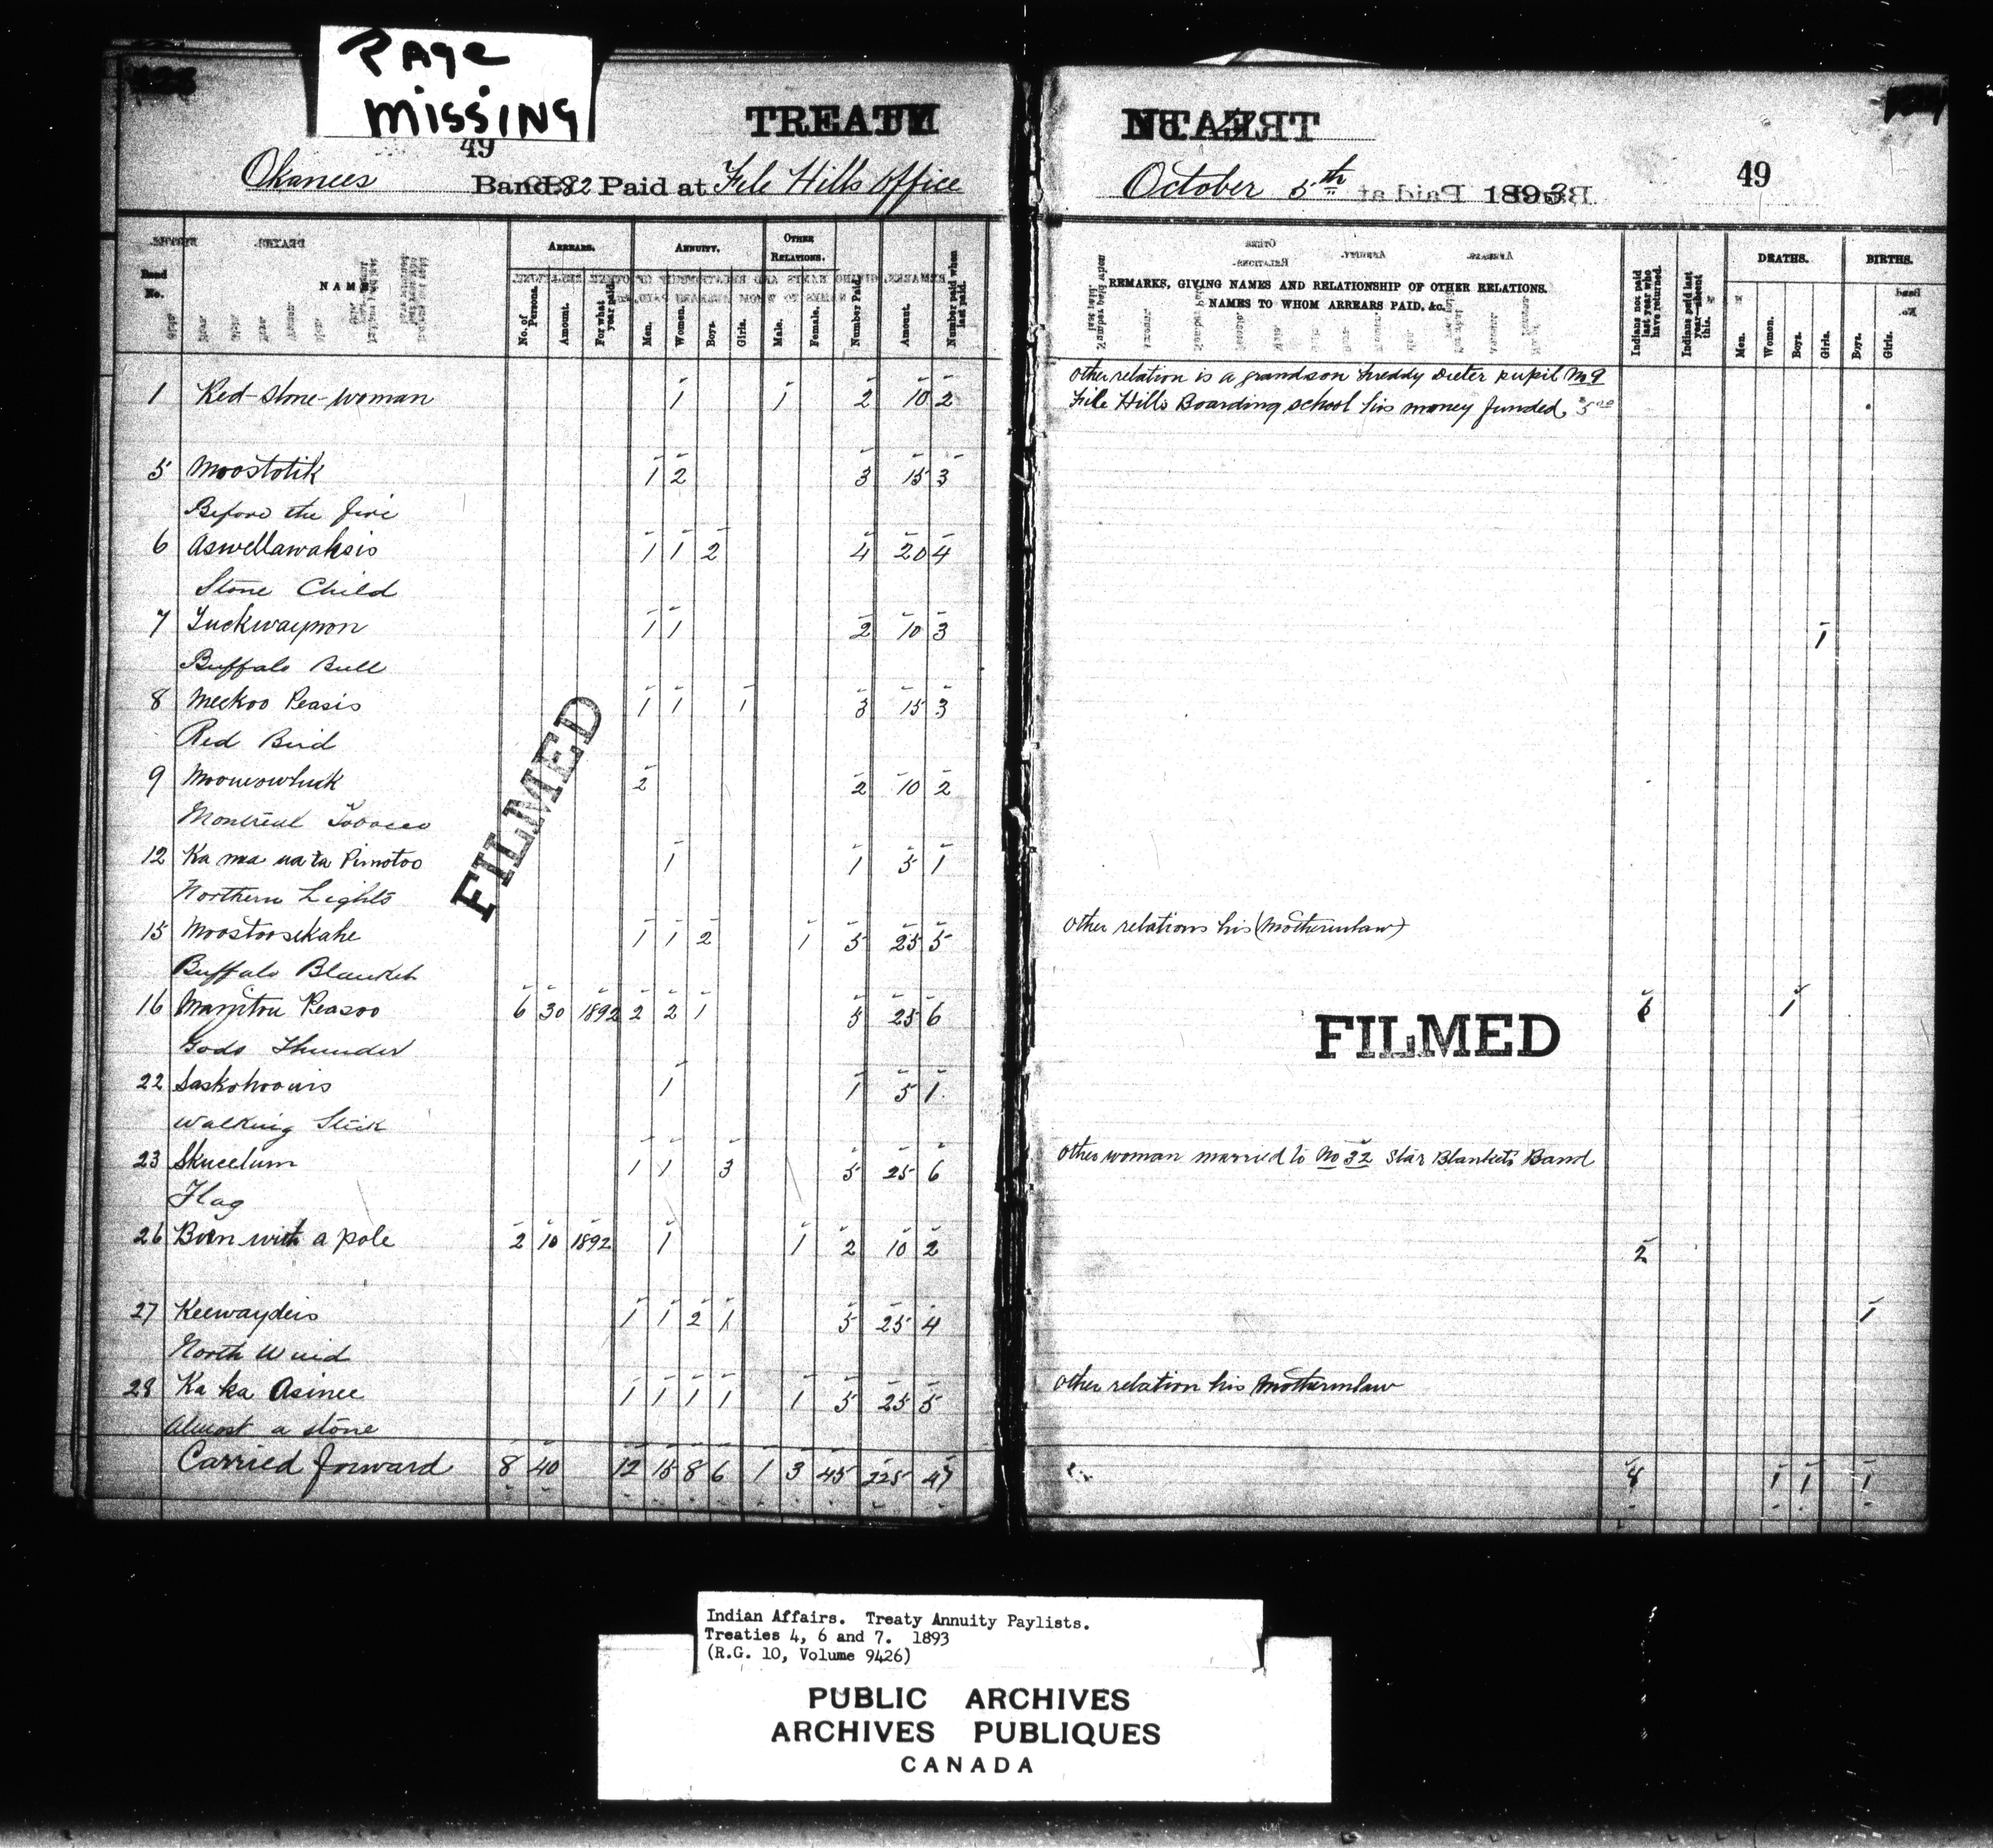 PAGE
MISSING
TREATY
49
Okanees Band. 82 Paid at File Hills office
ARREARS. ANNUITY. OTHER RELATIONS.
Band No. NAME No. of Persons. Amount. For what year paid. Men. Women. Boys. Girls. Male. Female. Number Paid. Amount. Number paid when last paid.
1 Red-stone-woman 1 1 2 10 2
5 Moostotik 1 2 3 15 3
Before the fire
6 Aswellawaksis 1 1 2 4 20 4
Stone Child
7 1 1 2 10 3
Buffalo Bull
8 Meekoo Peasis 1 1 1 3 15 3
Red Bird
9 2 2 10 2
Montreal Tobacco
12 Ka ma na ta Pimotoo 1 1 5 1
Northern Lights
15 Moostoosekahe 1 1 2 1 5 25 5
Buffalo Blanket
16 Manitou Peasoo 6 30 1892 2 2 1 5 25 6
Gods Thunder
22 1 1 5 1
Walking Stick
23 Skucelum 1 1 3 5 25 6
Flag
26 Born with a pole 2 10 1892 1 1 2 10 2
27 Keewaydeis 1 1 2 1 5 25 4
North Wind
28 Ka ka Asinee 1 1 1 1 1 5 25 5
Almost a stone
Carried forward 8 40 12 15 8 6 1 3 45 225 47
FILMED
49
October 5th 1893
REMARKS, GIVING NAMES AND RELATIONSHIP OF OTHER RELATIONS.
NAMES TO WHOM ARREARS PAID, &c.
Indians not paid last year who have returned.
Indians paid last year—absent this.
DEATHS. BIRTHS.
Men. Women. Boys. Girls. Boys. Girls.
Other relation is a grandson Freddy Dieter pupil No 9
File Hills Boarding school his money funded $5.00
1
Other relations his (Motherinlaw)
6 1
FILMED
Other woman married to No 32 Star Blankets Band
2
1
Other relation his Motherinlaw
8 1 1 1
Indian Affairs. Treaty Annuity Paylists.
Treaties 4, 6 and 7. 1893
(R.G. 10, Volume 9426)
PUBLIC ARCHIVES
ARCHIVES PUBLIQUES
CANADA